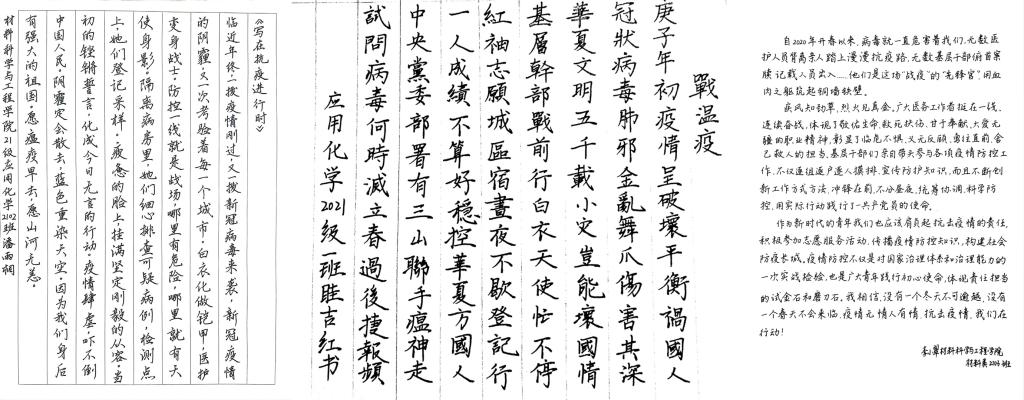 《写在抗疫进行时》
临近年终二拨疫情刚过，又一拨新冠病毒来袭，新冠疫情
的阴霾，又一次考验着每一个城市，白衣化做铠甲，医护
变身战士，防控一线就是战场，哪里有危险，哪里就有天
使身影，隔离病房里，她们细心排查可疑病例，检测点
上，她们登记采样，疲惫的脸上挂满坚定刚毅的从容，当
初的铮铮誓言，化成今日无言的行动，疫情肆虐，吓不倒
中国人民，阴霾定会散去，蓝色重染天空，因为我们身后
有强大的祖国，愿瘟疫早去，愿山河无恙。
材料科学与工程学院21级应用化学2102班潘雨桐
戰温疫
庚子年初疫情呈破壞平衡禍國人
冠狀病毒肺邪金亂舞爪傷害其深
華夏文明五千載小灾豈能壞國情
基層幹部戰前行白衣天使忙不停
紅袖志願城區宿晝夜不歇登記行
一人成績不算好穩控華夏方國人
中央黨委部署有三山聯手瘟神走
試問病毒何時滅立春過後捷報頻
应用化学2021级一班眭吉红书
自2020年开春以来，病毒就一直危害着我们。无数医
护人员背离亲人踏上漫漫抗疫路，无数基层干部俯首案
牍记载人员出入……他们是这场“战疫”的“先锋官”，用血
肉之躯筑起铜墙铁壁。
疾风知劲草，烈火见真金，广大医务工作者挺在一线、
连续奋战，体现了敬佑生命、救死扶伤、甘于奉献、大爱无
疆的职业精神，彰显了临危不惧、义无反顾、勇往直前、舍
己救人的担当。基层干部们亲自带头参与各项疫情防控工
作，不仅逐组逐户逐人摸排、宣传防护知识，而且不断创
新工作方式方法，冲锋在前，不分昼夜，统筹协调，科学防
控，用实际行动践行了一共产党员的使命。
作为新时代的青年我们也应该肩负起抗击疫情的责任，
积极参加志愿服务活动，传播疫情防控知识，构建社会
防疫长城，疫情防控不仅是对国家治理体系和治理能力的
一次实战检验，也是广大青年践行初心使命、体现责任担当
的试金石和磨刀石，我相信，没有一个冬天不可逾越，没有
一个春天不会来临，疫情无情人有情，抗击疫情，我们在
行动！
材料科学与工程学院
材科类2104班